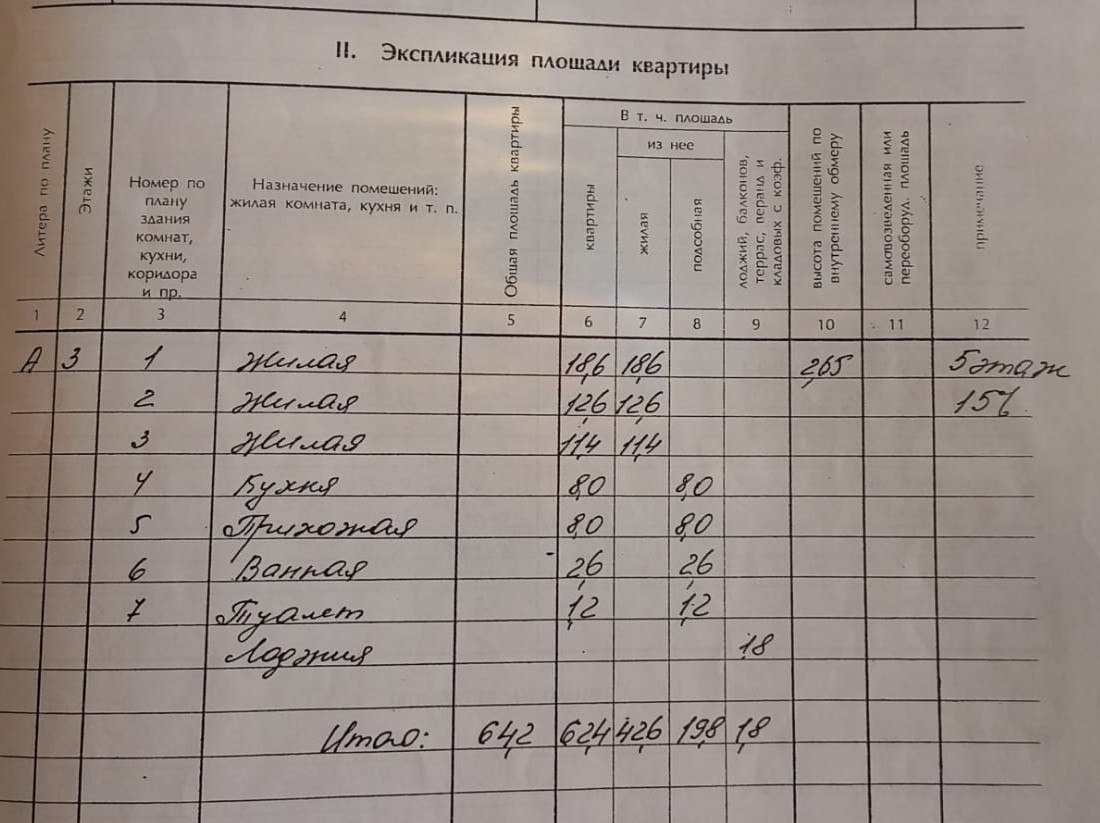 II. Экспликация площади квартиры
Литера по плану
Этажи
Номер по
плану
здания
комнат,
кухни,
коридора
и пр.
Назначение помещений:
жилая комната, кухня и т. п.
Общая площадь квартиры
В т. ч. площадь
квартиры
из нее
жилая
подсобная
лоджий, балконов,
террас, веранд и
кладовых с коэф.
высота помещений по
внутреннему обмеру
самовозведенная или
переоборуд. площадь
примечание
1 2 3 4 5 6 7 8 9 10 11 12
А 3 1 Жилая 18,6 18,6 2,65 5 этаж
2 Жилая 12,6 12,6
3 Жилая 11,4 11,4
4 Кухня 8,0 8,0
5 Прихожая 8,0 8,0
6 Ванная 2,6 2,6
7 Туалет 1,2 1,2
Лоджия 1,8
Итого: 64,2 62,4 42,6 19,8 1,8